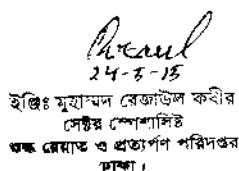 24-5-15
ইঞ্জিঃ মুহাম্মদ রেজাউল কবীর
সেক্টর স্পেশালিষ্ট
শুল্ক রেয়াত ও প্রত্যর্পণ পরিদপ্তর
ঢাকা।